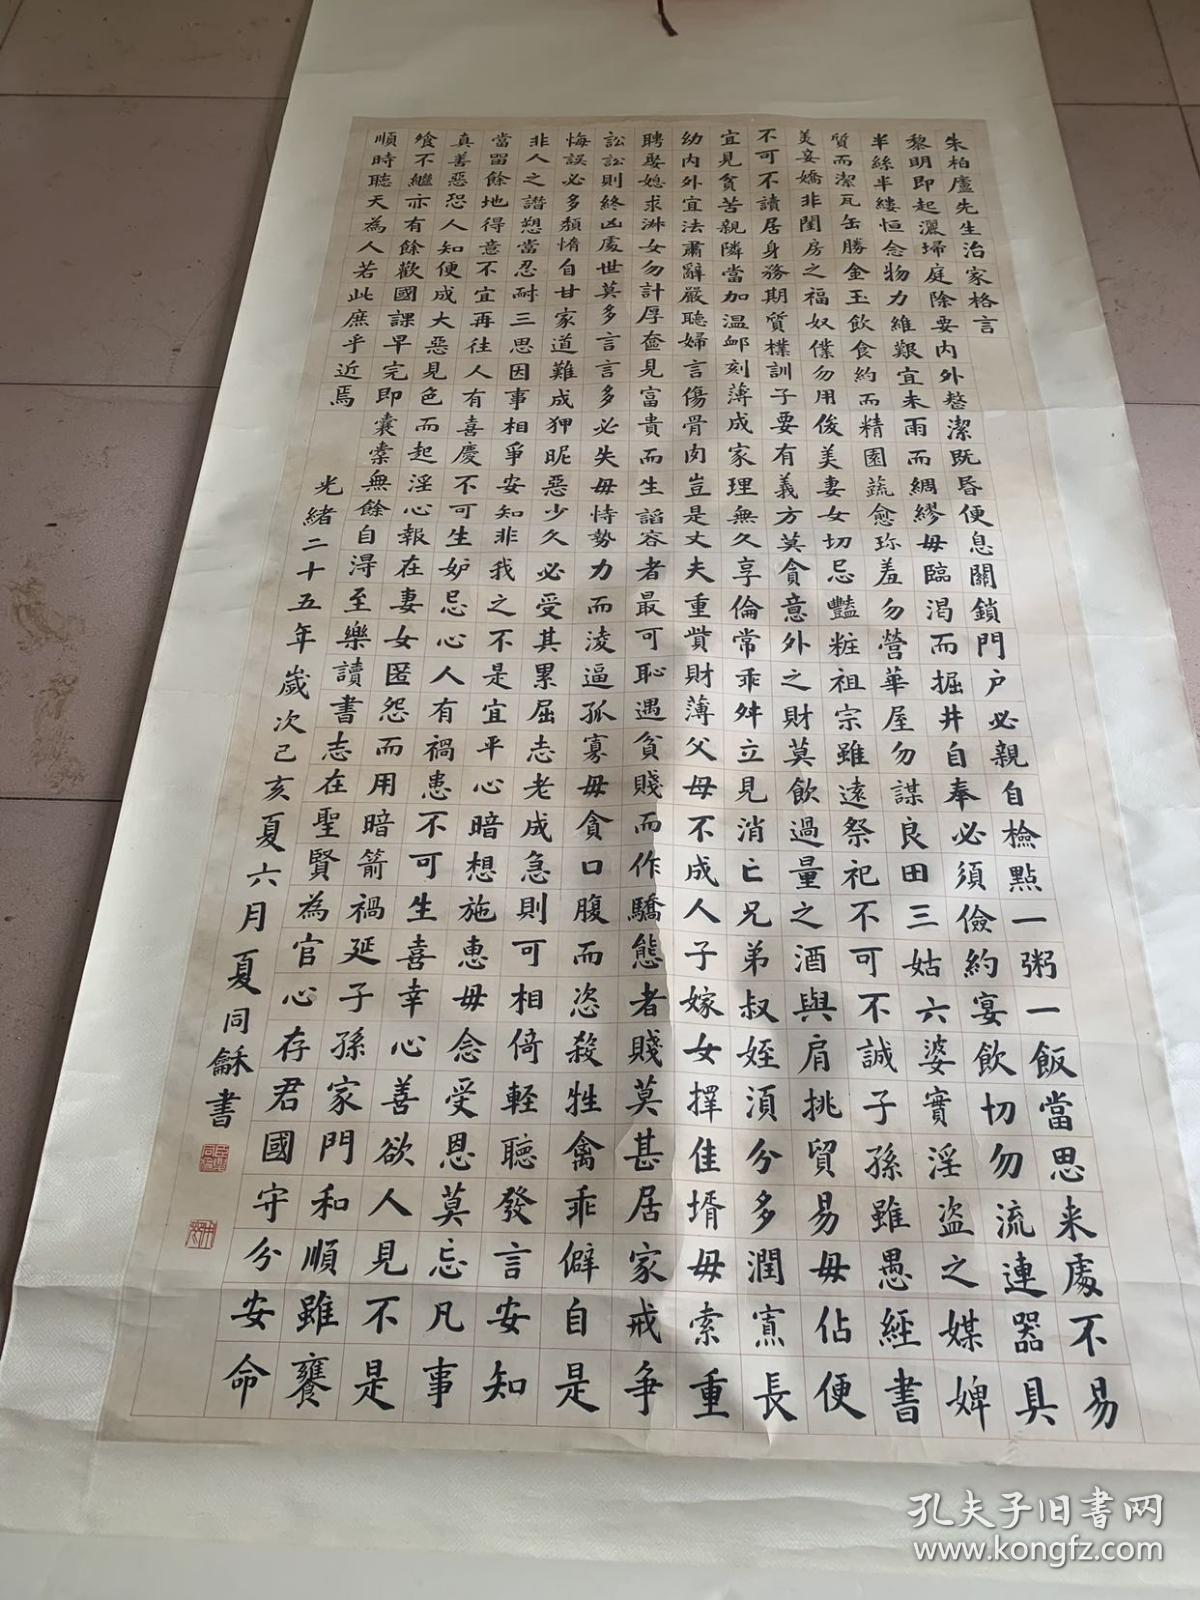 朱柏廬先生治家格言
黎明即起灑埽庭除要内外整潔既昬便息關鎖門户必親自檢點一粥一飯當思来處不易
半絲半縷恒念物力維艱宜未雨而綢繆毋臨渴而掘井自奉必須儉約宴飲切勿流連器具
質而潔瓦缶勝金玉飲食約而精園蔬愈珍羞勿營華屋勿謀良田三姑六婆實淫盗之媒婢
美妾嬌非閨房之福奴僕勿用俊美妻女切忌豔粧祖宗雖遠祭祀不可不誠子孫雖愚經書
不可不讀居身務期質樸訓子要有義方莫貪意外之財莫飲過量之酒與肩挑貿易毋佔便
宜見貧苦親隣當加温邮刻薄成家理無久享倫常乖舛立見消亡兄弟叔姪須分多潤寡長
幼内外宜法肅辭嚴聽婦言傷骨肉豈是丈夫重貲財薄父母不成人子嫁女擇佳壻毋索重
聘娶媳求淋女勿計厚奩見富貴而生諂容者最可恥遇貧賤而作驕態者賤莫甚居家戒爭
訟訟則終凶處世莫多言言多必失毋恃勢力而淩逼孤寡毋貪口腹而恣殺牲禽乖僻自是
悔誤必多頽惰自甘家道難成狎昵惡少久必受其累屈志老成急則可相倚輕聽發言安知
非人之譛愬當忍耐三思因事相爭安知非我之不是宜平心暗想施惠毋念受恩莫忘凡事
當留餘地得意不宜再往人有喜慶不可生妒忌心人有禍患不可生喜幸心善欲人見不是
真善惡恐人知便成大惡見色而起淫心報在妻女匿怨而用暗箭禍延子孫家門和順雖饔
飧不繼亦有餘歡國課早完即囊橐無餘自得至樂讀書志在聖賢為官心存君國守分安命
順時聽天為人若此庶乎近焉
光緒二十五年歲次己亥夏六月夏同龢書
孔夫子旧書网
www.kongfz.com